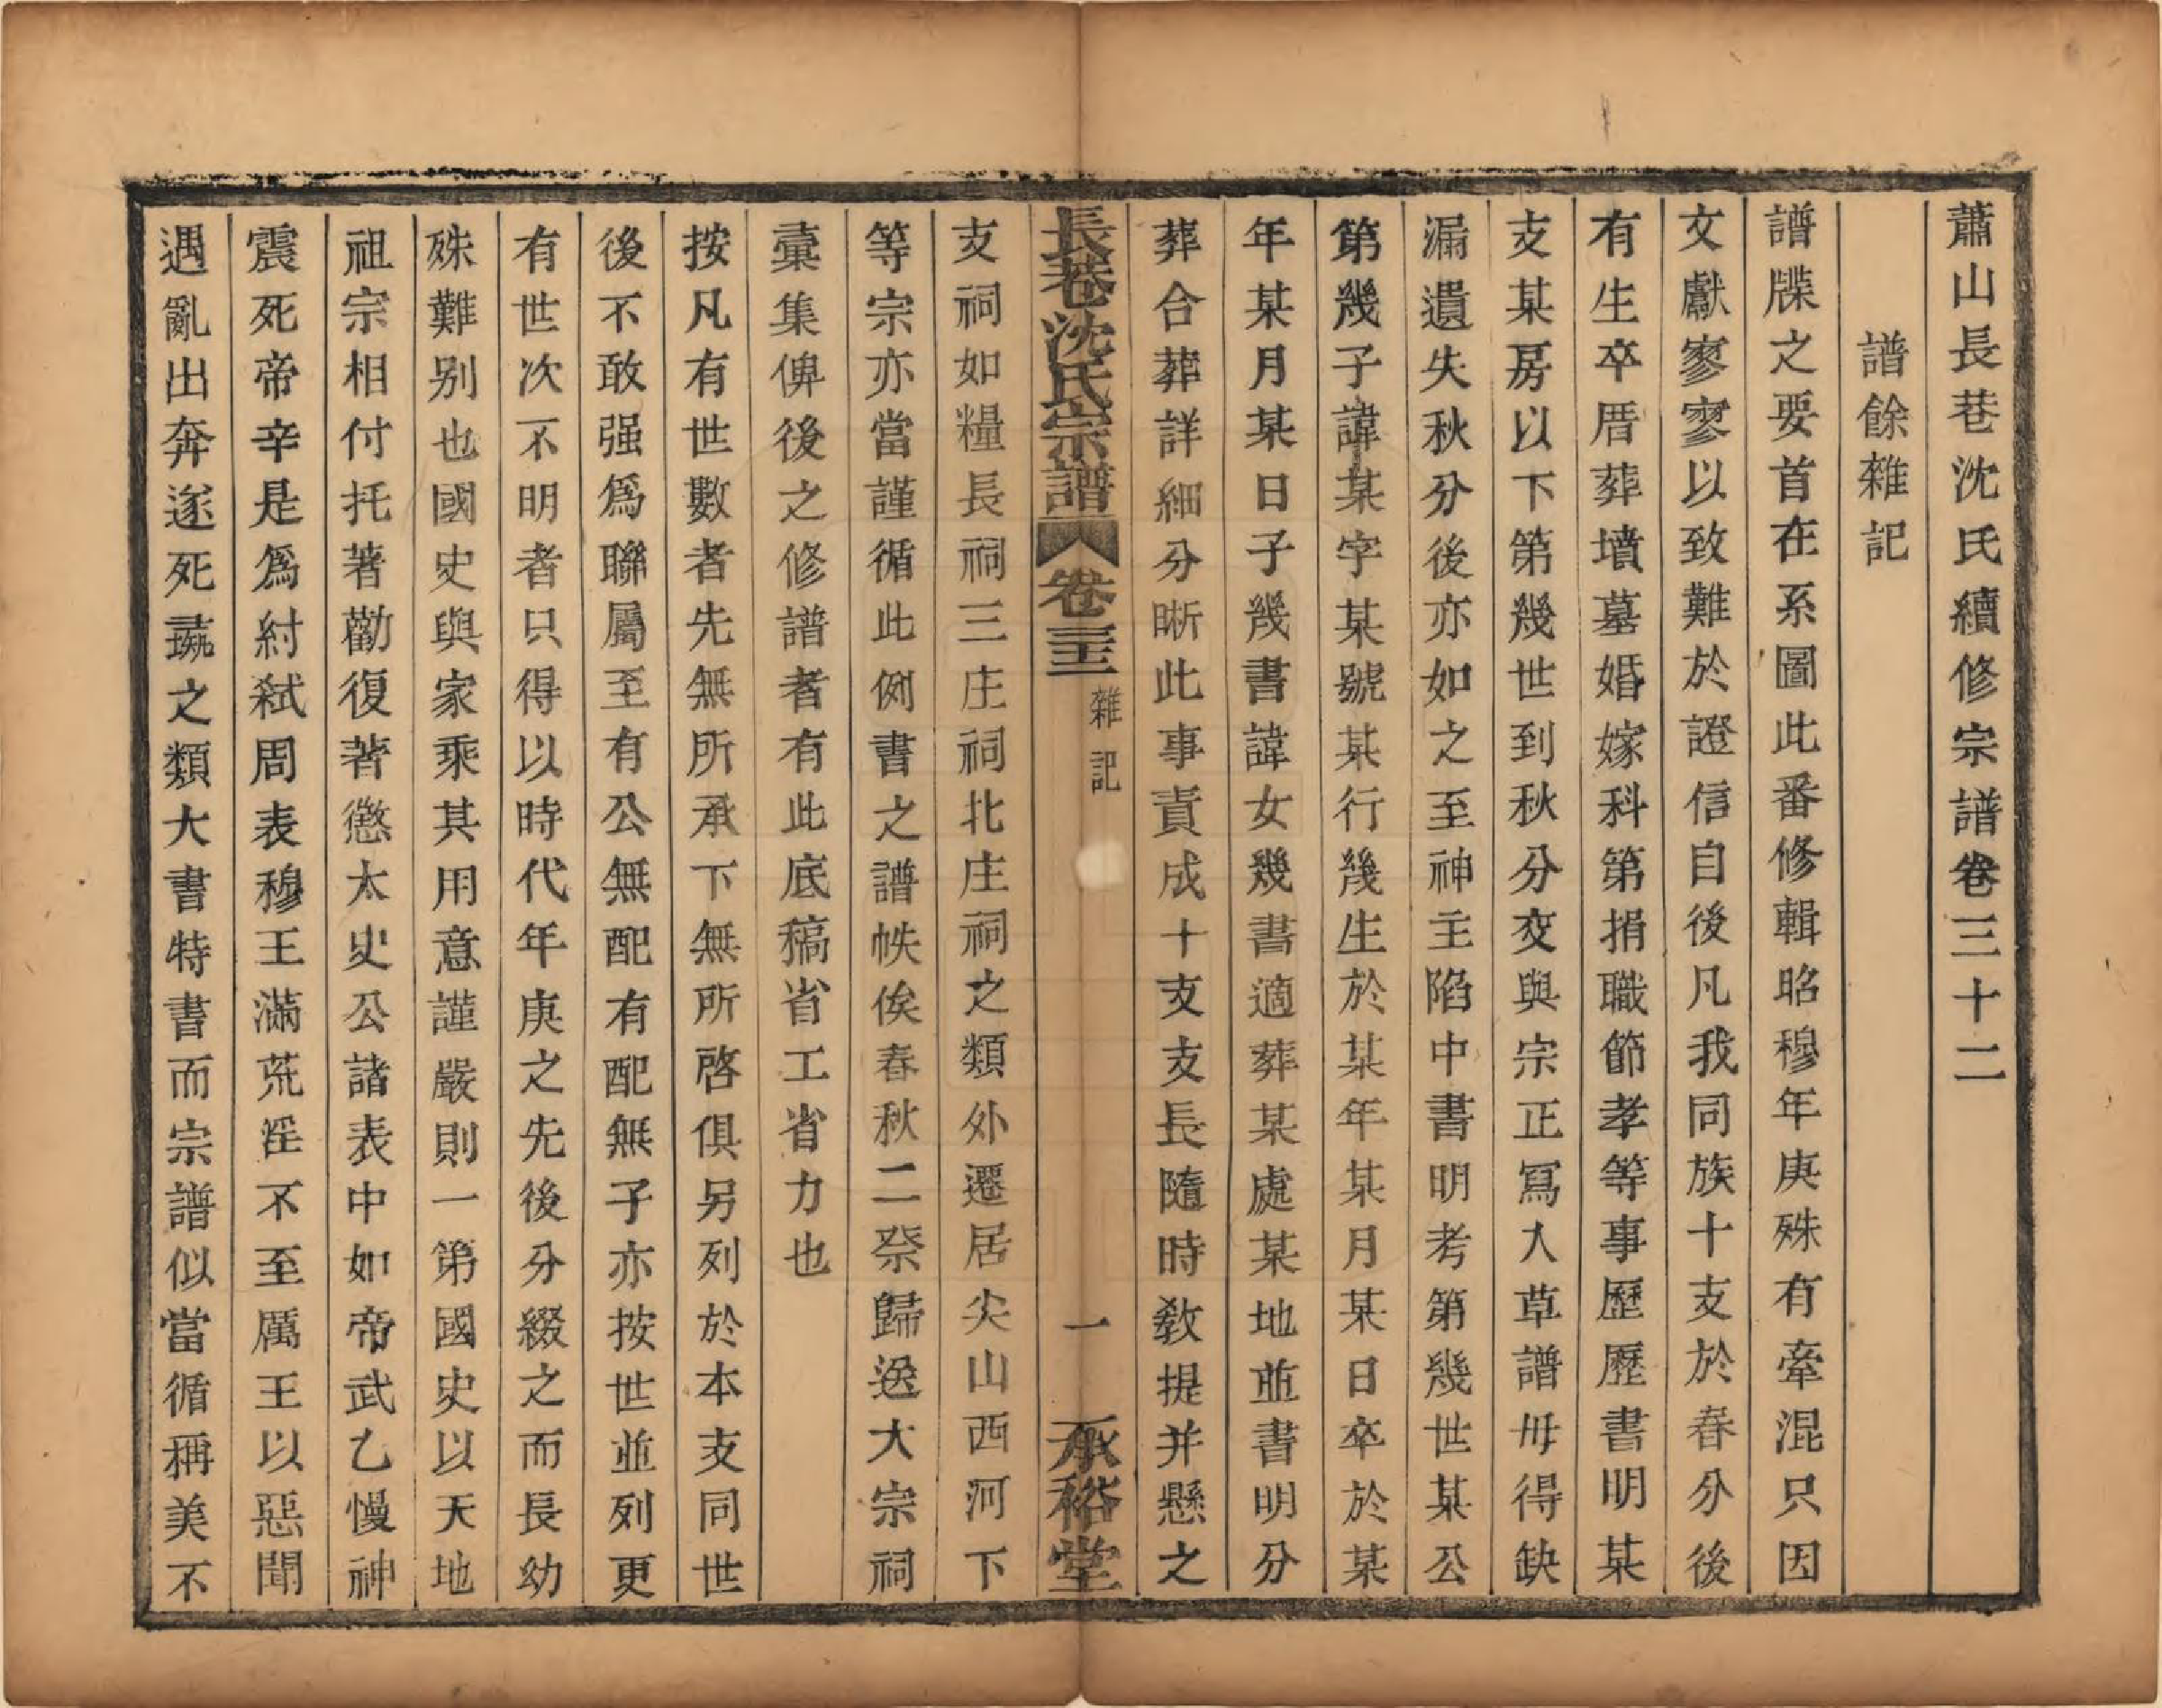 蕭山長巷沈氏續修宗譜卷三十二
譜餘雜記
譜牒之要首在系圖此番修輯昭穆年庚殊有牽混只因
文獻寥寥以致難於證信自後凡我同族十支於春分後
有生卒厝葬墳墓婚嫁科第捐職節孝等事歷歷書明某
支某房以下第幾世到秋分交與宗正冩入草譜毋得缺
漏遺失秋分後亦如之至神主陷中書明考第幾世某公
第幾子諱某字某號某行幾生於某年某月某日卒於某
年某月某日子幾書諱女幾書適葬某處某地並書明分
葬合葬詳細分晰此事責成十支支長隨時敎提并懸之
長巷沈氏宗譜 卷三十二 雜記 一 承裕堂
支祠如糧長祠三庄祠北庄祠之類外遷居尖山西河下
等宗亦當謹循此例書之譜帙俟春秋二祭歸送大宗祠
彙集俾後之修譜者有此底稿省工省力也
按凡有世數者先無所承下無所啓俱另列於本支同世
後不敢强爲聯屬至有公無配有配無子亦按世並列更
有世次不明者只得以時代年庚之先後分綴之而長幼
殊難别也國史與家乘其用意謹嚴則一第國史以天地
祖宗相付托著勸復著懲太史公諸表中如帝武乙慢神
震死帝辛是爲紂弑周表穆王滿荒淫不至厲王以惡聞
遇亂出奔遂死彘之類大書特書而宗譜似當循稱美不